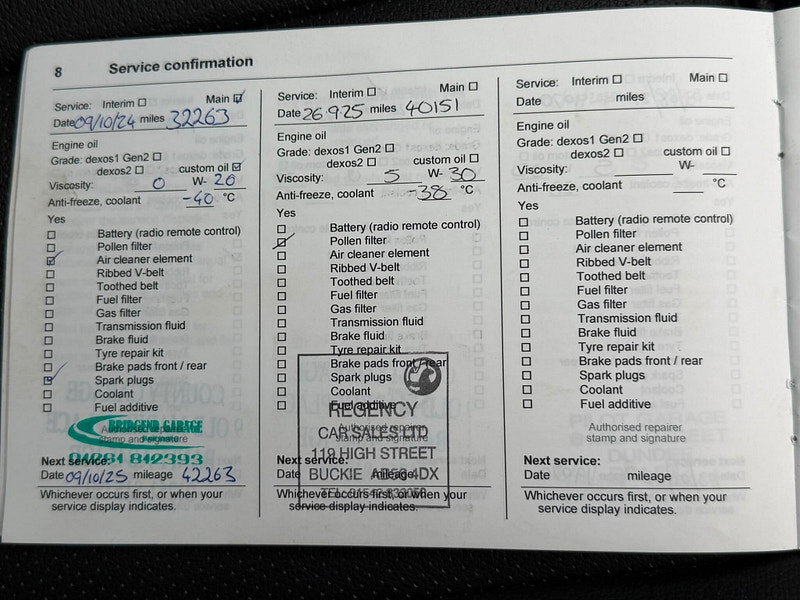 8 Service confirmation
Service: Interim ☐ Main ☑
Date 09/10/24 miles 32263
Engine oil
Grade: dexos1 Gen2 ☐
dexos2 ☐ custom oil ☑
Viscosity: 0 W- 20
Anti-freeze, coolant -40 °C
Yes
☐ Battery (radio remote control)
☐ Pollen filter
☑ Air cleaner element
☐ Ribbed V-belt
☐ Toothed belt
☐ Fuel filter
☐ Gas filter
☐ Transmission fluid
☐ Brake fluid
☐ Tyre repair kit
☐ Brake pads front / rear
☑ Spark plugs
☐ Coolant
☐ Fuel additive
BRIDGEND GARAGE
Authorised repairer
stamp and signature
01261 812393
Next service:
Date 09/10/25 mileage 42263
Whichever occurs first, or when your
service display indicates.
Service: Interim ☐ Main ☐
Date 26.925 miles 40151
Engine oil
Grade: dexos1 Gen2 ☐
dexos2 ☐ custom oil ☐
Viscosity: 5 W- 30
Anti-freeze, coolant -38 °C
Yes
☐ Battery (radio remote control)
☑ Pollen filter
☐ Air cleaner element
☐ Ribbed V-belt
☐ Toothed belt
☐ Fuel filter
☐ Gas filter
☐ Transmission fluid
☐ Brake fluid
☐ Tyre repair kit
☐ Brake pads front / rear
☐ Spark plugs
☐ Coolant
☐ Fuel additive
REGENCY
Authorised repairer
CAR SALES LTD
stamp and signature
119 HIGH STREET
Next service:
BUCKIE AB56 4DX
Date mileage
Whichever occurs first, or when your
service display indicates.
Service: Interim ☐ Main ☐
Date miles
Engine oil
Grade: dexos1 Gen2 ☐
dexos2 ☐ custom oil ☐
Viscosity: W-
Anti-freeze, coolant °C
Yes
☐ Battery (radio remote control)
☐ Pollen filter
☐ Air cleaner element
☐ Ribbed V-belt
☐ Toothed belt
☐ Fuel filter
☐ Gas filter
☐ Transmission fluid
☐ Brake fluid
☐ Tyre repair kit
☐ Brake pads front / rear
☐ Spark plugs
☐ Coolant
☐ Fuel additive
Authorised repairer
stamp and signature
Next service:
Date mileage
Whichever occurs first, or when your
service display indicates.